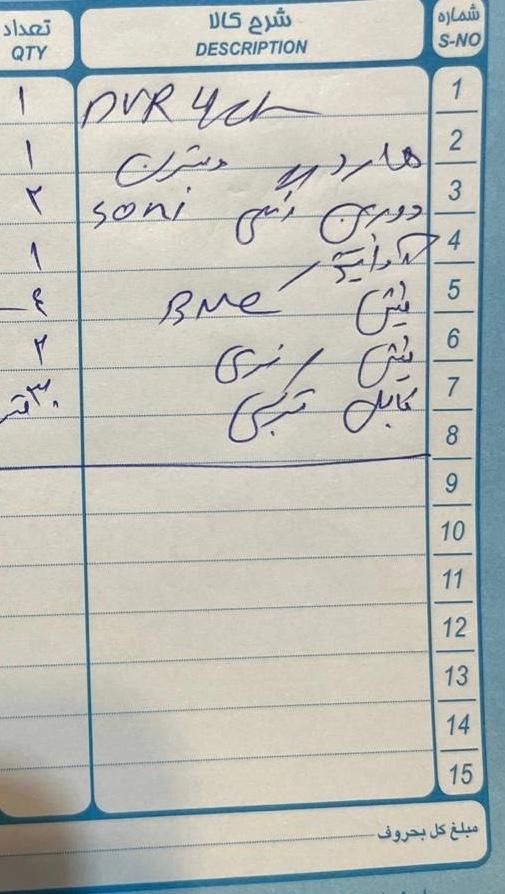 شماره S-NO شرح کالا DESCRIPTION تعداد QTY
1 DVR 4ch ۱
2 هارد وسترن ۱
3 دوربین soni ۲
4 ۱
5 فیش BNC ٤
6 فیش نری ۲
7 کابل ترکیبی ۳۰ متر
8
9
10
11
12
13
14
15
مبلغ کل بحروف